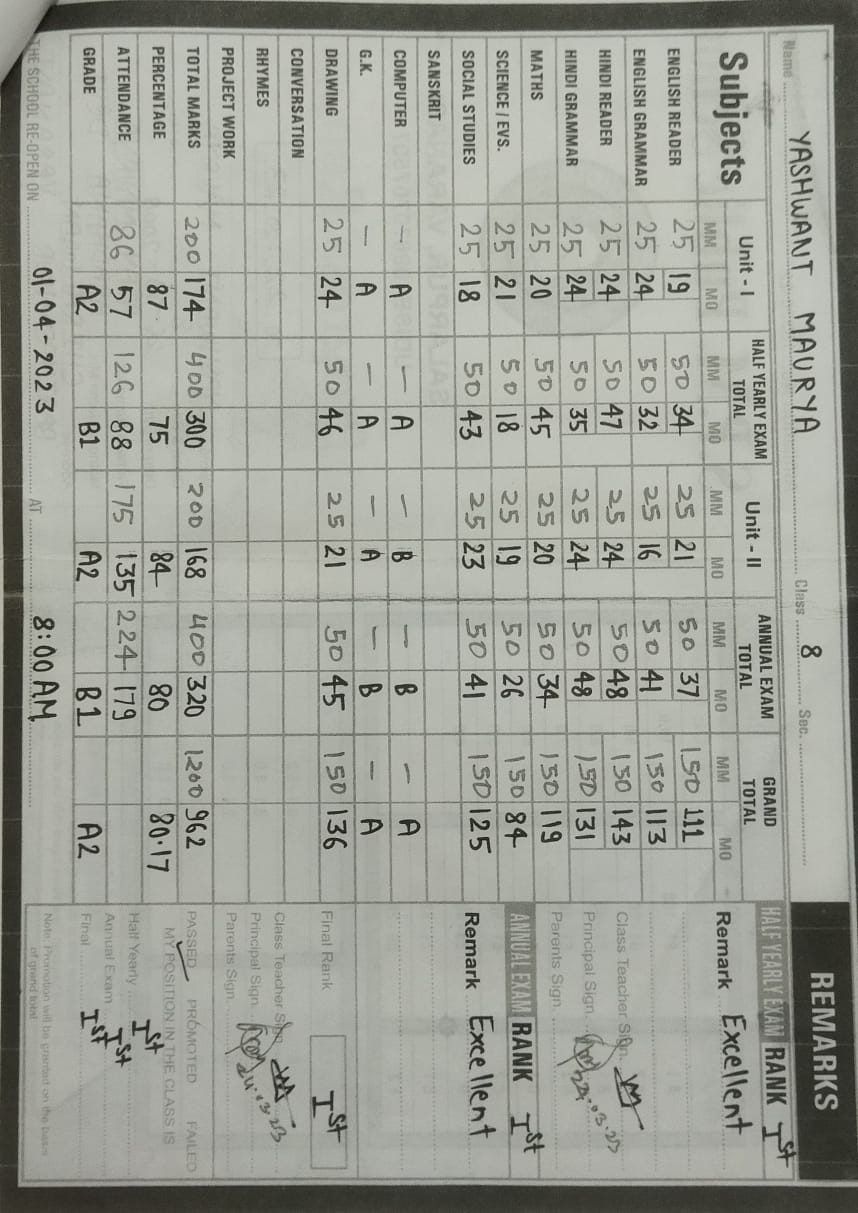 Name YASHWANT MAURYA Class 8 Sec.
Subjects Unit - I HALF YEARLY EXAM TOTAL Unit - II ANNUAL EXAM TOTAL GRAND TOTAL
MM MO MM MO MM MO MM MO MM MO
ENGLISH READER 25 19 50 34 25 21 50 37 150 111
ENGLISH GRAMMAR 25 24 50 32 25 16 50 41 150 113
HINDI READER 25 24 50 47 25 24 50 48 150 143
HINDI GRAMMAR 25 24 50 35 25 24 50 48 150 131
MATHS 25 20 50 45 25 20 50 34 150 119
SCIENCE / EVS. 25 21 50 18 25 19 50 26 150 84
SOCIAL STUDIES 25 18 50 43 25 23 50 41 150 125
SANSKRIT
COMPUTER — A — A — B — B — A
G.K. — A — A — A — B — A
DRAWING 25 24 50 46 25 21 50 45 150 136
CONVERSATION
RHYMES
PROJECT WORK
TOTAL MARKS 200 174 400 300 200 168 400 320 1200 962
PERCENTAGE 87 75 84 80 80.17
ATTENDANCE 86 57 126 88 175 135 224 179
GRADE A2 B1 A2 B1 A2
THE SCHOOL RE-OPEN ON 01-04-2023 AT 8:00 AM
REMARKS
HALF YEARLY EXAM RANK Ist
Remark Excellent
Class Teacher Sign.
Principal Sign. 24.03.23
Parents Sign
ANNUAL EXAM RANK Ist
Remark Excellent
Final Rank Ist
Class Teacher Sign
Principal Sign. 24.03.23
Parents Sign
PASSED PROMOTED FAILED
MY POSITION IN THE CLASS IS
Half Yearly Ist
Annual Exam Ist
Final Ist
Note: Promotion will be granted on the basis
of grand total